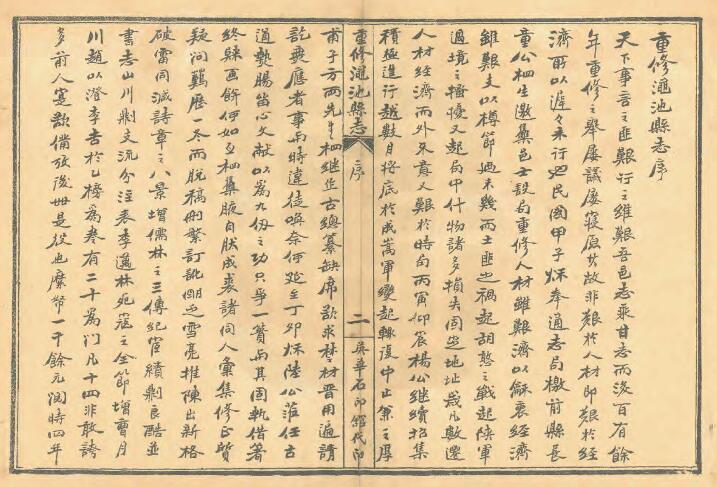 重修澠池縣志序
天下事言之匪艱行之維艱吾邑志乘甘志而後百有餘
年重修之舉屢議屢寢原其故非艱於人材即艱於經
濟所以遲々未行迨民國甲子秋奉通志局檄前縣長
童公枏生邀集邑士設局重修人材雖艱濟以龢衷經濟
雖艱支以樽節廼未幾而土匪之禍起胡憨之戰起陝軍
過境之擾又起局中什物諸多損失固坐地址歲凡數遷
人材經濟而外來袁人艱於時局丙寅仰宸楊公繼續招集
積極進行越數月將底於成嵩軍變起輟復中止兼之厚
重修澠池縣志
序
二
英華石印館代印
甫子方兩先生相繼作古總纂缺席欲求替材晉用遍請
訖無應者事與時違徒喚奈何延至丁卯秋陸公蒞任古
道熱腸留心文獻以為九仞之功只爭一簣而其固執借箸
終歸畫餅何如之相集腋自狀成裘諸同人彙集修正質
疑問難歷一冬而脫稿刪繁訂訛朗也雪亮推陳出新格
破雷同減詩章之八景增儒林之三傳紀宦績剔良酷並
書志山川剔支流分注表李邁林死寇之全節增曹月
川趙以澄李吉於乙榜為卷有二十為門凡十四非敢誇
多前人寔欲備攷後世是役也糜幣一千餘元閱時四年